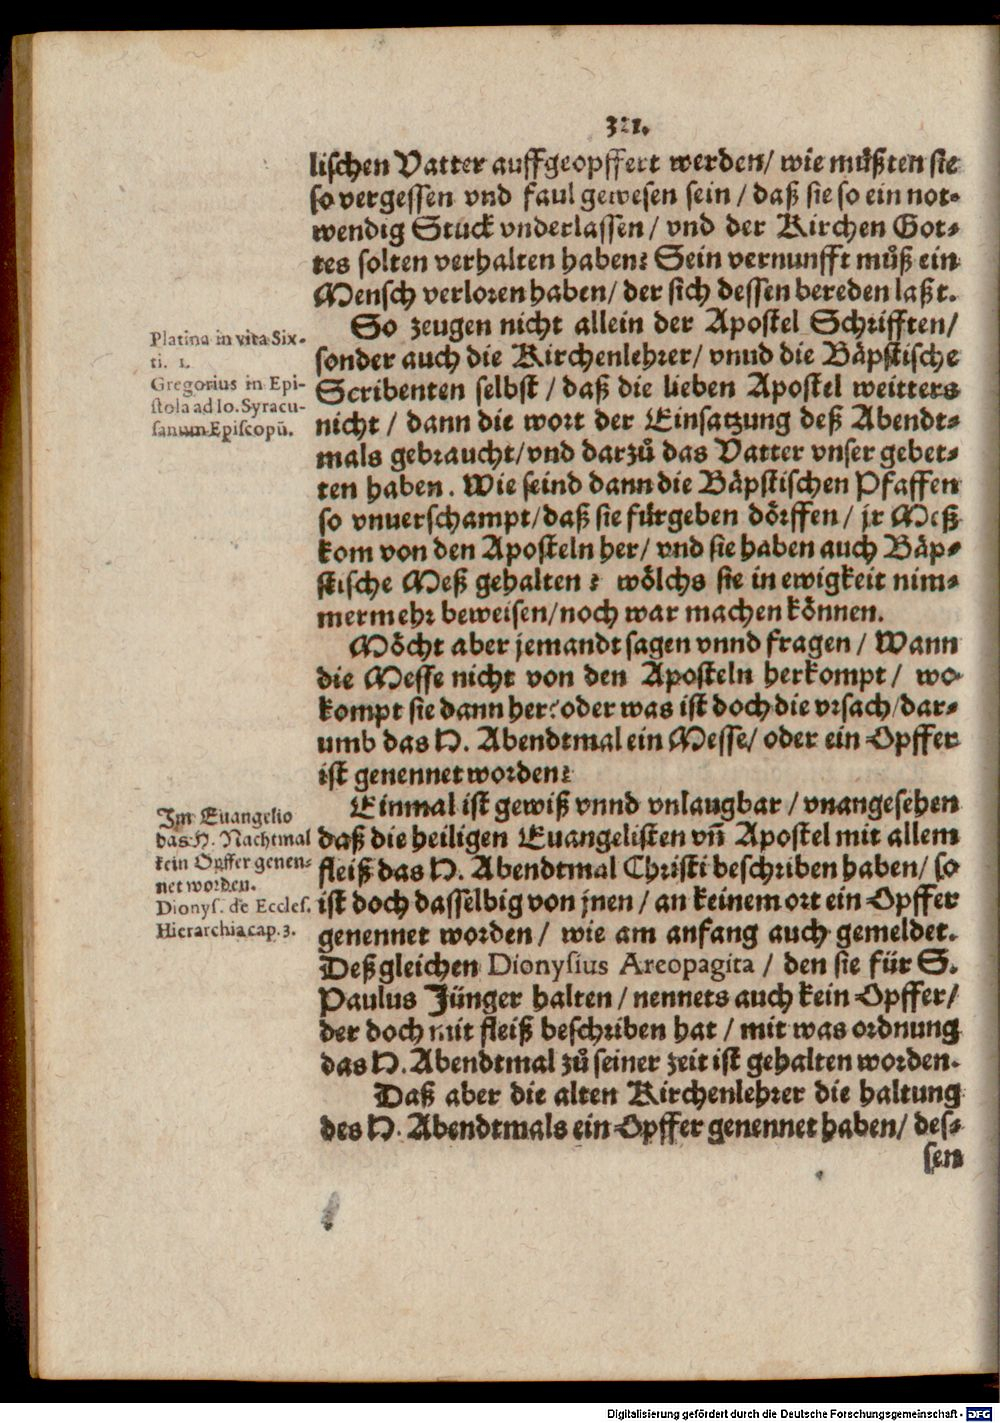 lischen Vatter auffgeopffert werden/ wie müßten sie
so vergessen vnd faul gewesen sein / daß sie so ein not-
wendig Stuck vnderlassen / vnd der Kirchen Got-
tes solten verhalten haben? Sein vernunfft můß ein
Mensch verloren haben/ der sich dessen bereden laßt.
So zeugen nicht allein der Apostel Schrifften/
sonder auch die Kirchenlehrer/ vnnd die Bäpstische
Scribenten selbst / daß die lieben Apostel weitters
nicht / dann die wort der Einsatzung deß Abendt-
mals gebraucht/vnd darzů das Vatter vnser gebet-
ten haben. Wie seind dann die Bäpstischen Pfaffen
so vnuerschampt/daß sie fürgeben dörffen / jr Meß
kom von den Aposteln her/ vnd sie haben auch Bäp-
stische Meß gehalten? wölchs sie in ewigkeit nim-
mermehr beweisen/noch war machen können.
Platina in vita Six-
ti. 1.
Gregorius in Epi-
stola ad Io. Syracu-
sanum Episcopū.
Möcht aber jemandt sagen vnnd fragen / Wann
die Messe nicht von den Aposteln herkompt/ wo
kompt sie dann her? oder was ist doch die vrsach/dar-
umb das H. Abendtmal ein Messe/ oder ein Opffer
ist genennet worden?
Einmal ist gewiß vnnd vnlaugbar / vnangesehen
daß die heiligen Euangelisten vñ Apostel mit allem
fleiß das H. Abendtmal Christi beschriben haben/ so
ist doch dasselbig von jnen / an keinem ort ein Opffer
genennet worden / wie am anfang auch gemeldet.
Deßgleichen Dionysius Areopagita / den sie für S.
Paulus Jünger halten / nennets auch kein Opffer/
der doch mit fleiß beschriben hat / mit was ordnung
das H. Abendtmal zů seiner zeit ist gehalten worden.
Im Euangelio
das H. Nachtmal
kein Opffer genen-
net worden.
Dionys. de Eccles.
Hierarchia cap. 3.
Daß aber die alten Kirchenlehrer die haltung
des H. Abendtmals ein Opffer genennet haben/ des-
sen
Digitalisierung gefördert durch die Deutsche Forschungsgemeinschaft - DFG